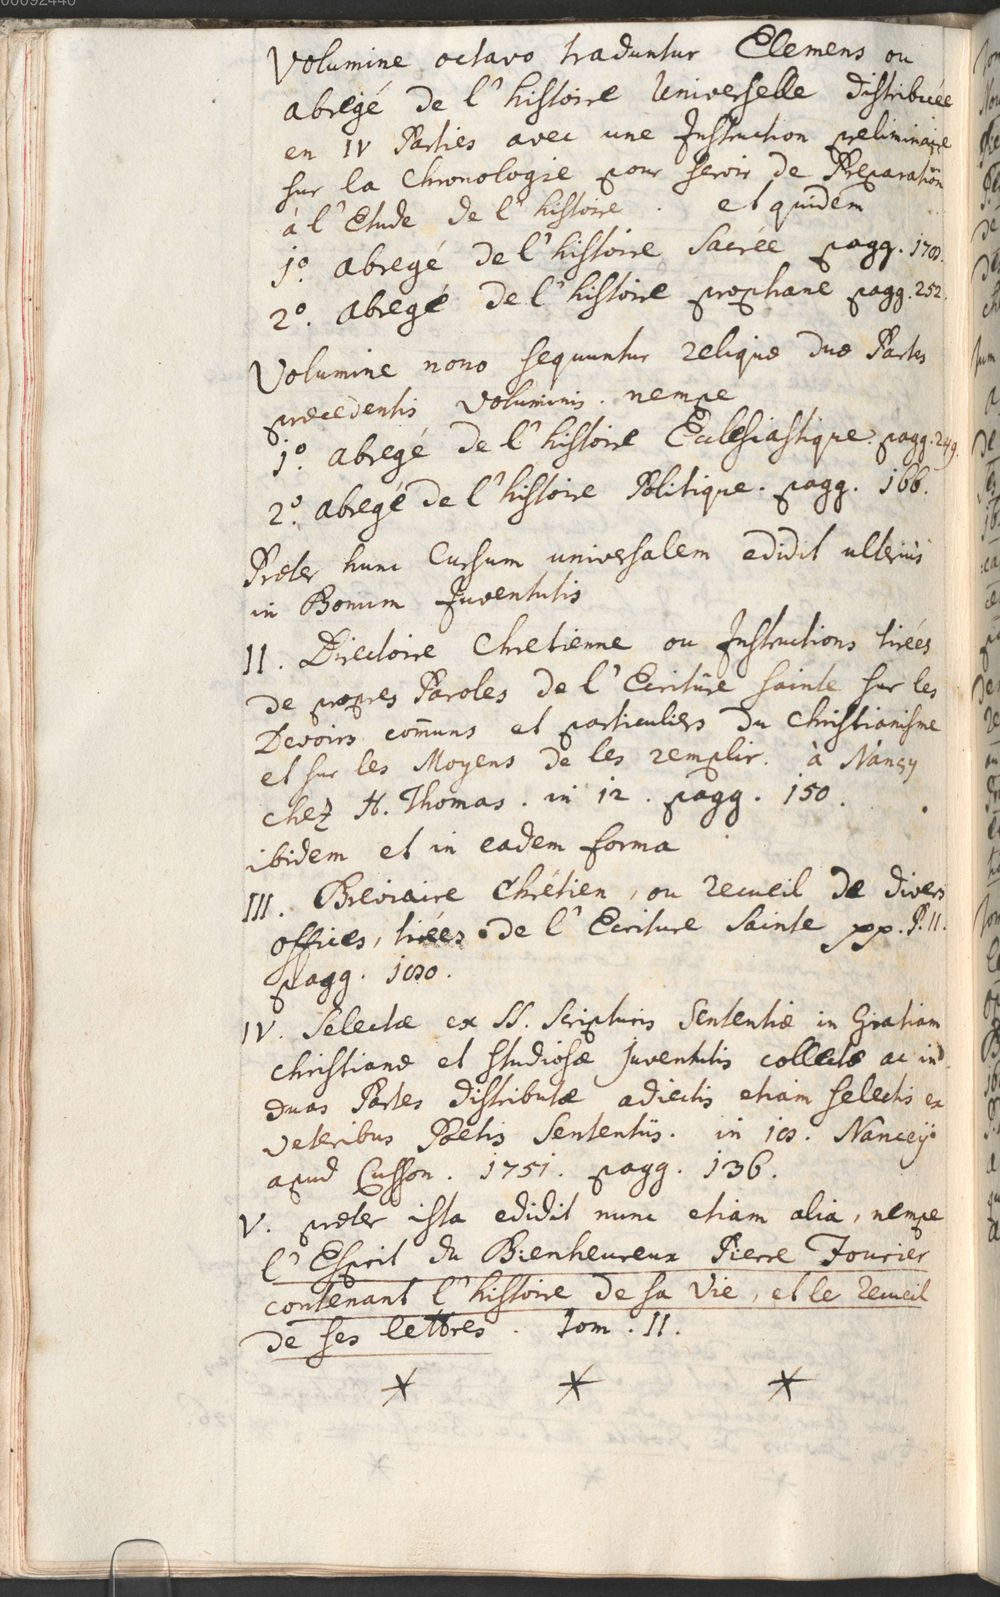 00092440
Volumine octavo traduntur Elemens ou
abregé de l'histoire Universelle distribuée
en IV Parties avec une Instruction preliminaire
sur la Chronologie pour servir de Preparation
à l'Etude de l'histoire . et quidem
1º. abregé de l'histoire Sacrée pagg.
2º. abregé de l'histoire prophane pagg. 252.
Volumine nono sequuntur reliquæ duæ Partes
præcedentis Voluminis . nempe
1º. abregé de l'histoire Ecclesiastique. pagg. 249.
2º. abregé de l'histoire Politique. pagg. 166.
Præter hunc Cursum universalem edidit ulterius
in Bonum Juventutis
II. Directoire Chretienne ou Instructions tirées
de propres Paroles de l'Ecriture sainte sur les
Devoirs com̄uns et particuliers du Christianisme
et sur les Moyens de les remplir. à Nancy
chez H. Thomas. in 12. pagg. 150.
ibidem et in eadem forma
III. Breviaire Chrétien, ou recueil de divers
offices, tirées de l'Ecriture Sainte pp. P. II.
pagg.
IV. Selectæ ex SS. Scripturis Sententiæ in Gratiam
Christianæ et studiosæ Juventutis collectæ ac in
duas Partes distributæ adiectis etiam selectis ex
Veteribus Poetis Sententiis. in Nanceÿ
apud Cusson. 1751. pagg. 136.
V. præter ista edidit nunc etiam alia, nempe
l'Esprit du Bienheureux Pierre Fourier
contenant l'histoire de sa Vie, et le recueil
de ses lettres. Tom. II.